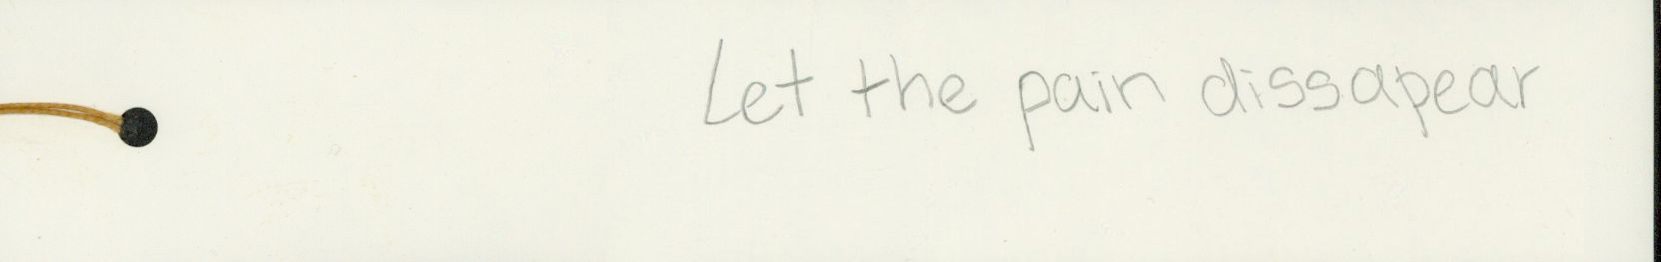 Let the pain dissapear